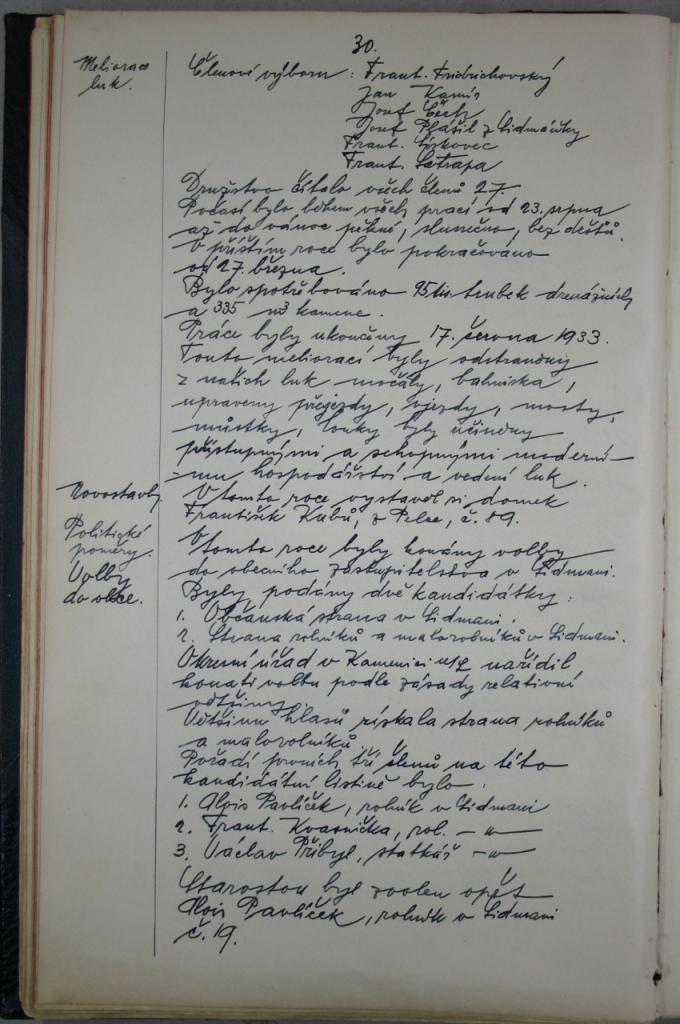 30.
Meliorace
luk.
Členové výboru: Frant. Fridrichovský
Jan Kamír
Josef Čech
Josef Plášil z Lidmáňky
Frant. Liškovec
Frant. Šatrapa
Družstvo čítalo všech členů 27.
Počasí bylo během všech prací od 23. srpna
až do vánoc pěkné, slunečno, bez dešťů.
V příštím roce bylo pokračováno
od 27. března.
Bylo spotřebováno 95 tis. trubek drenážních
a 335 m3 kamene.
Práce byly ukončeny 17. června 1933.
Touto meliorací byly odstraněny
z našich luk močály, bahniska,
upraveny přejezdy, vjezdy, mosty,
můstky, louky byly učiněny
přístupnými a schopnými moderní-
mu hospodářství a vedení luk.
Novostavby
V tomto roce vystavěl si domek
František Kubů, z Pelce, č. 89.
Politické
poměry.
Volby
do obce.
V tomto roce byly konány volby
do obecního zastupitelstva v Lidmani.
Byly podány dvě kandidátky:
1. Občanská strana v Lidmani.
2. Strana rolníků a malorolníků v Lidmani.
Okresní úřad v Kamenici n/L nařídil
konati volbu podle zásady relativní
většiny.
Většinu hlasů získala strana rolníků
a malorolníků.
Pořadí prvních tří členů na této
kandidátní listině bylo:
1. Alois Pavlíček, rolník v Lidmani
2. Frant. Kvasnička, rol. — " —
3. Václav Přibyl, statkář — " —
Starostou byl zvolen opět
Alois Pavlíček, rolník v Lidmani
č. 19.